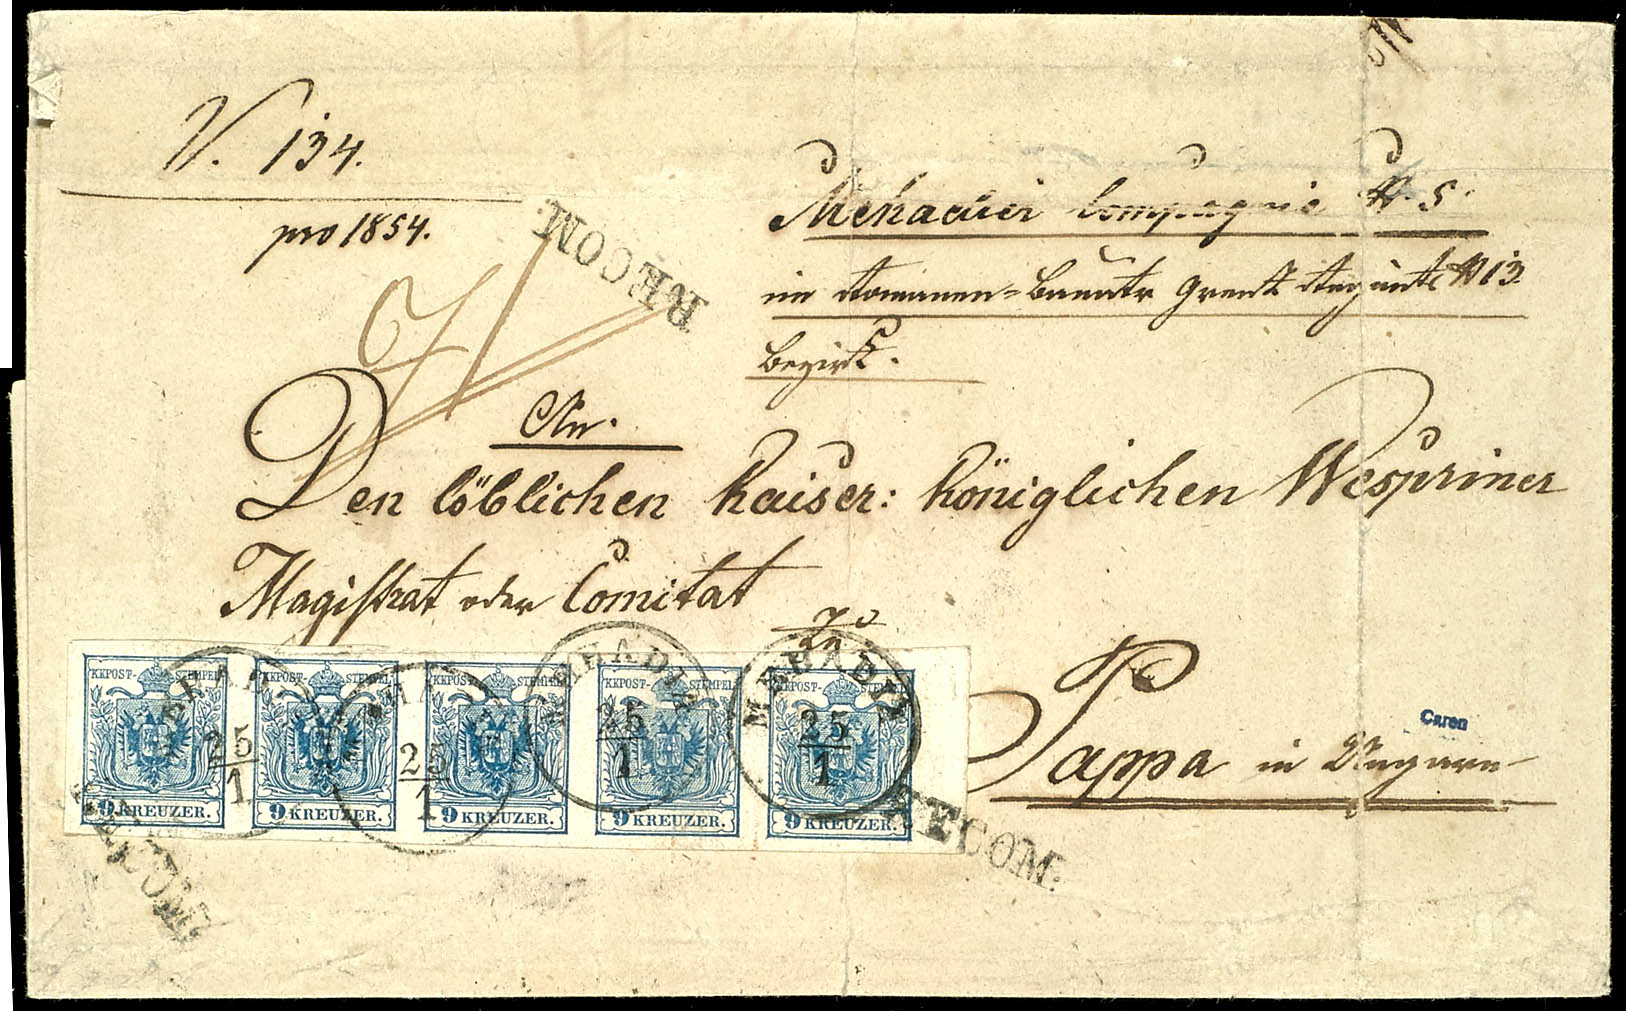 V. 134.
pro 1854.
RECOM:
Mehadier Compagnie N. 5.
im Romanen-Banater Grenz Regimts N 13
Bezirk.
An.
Den löblichen Kaiser: Königlichen Wespriner
Magistrat oder Comitat
zu
Pappa in Ungarn
Caren
KKPOST-STEMPEL KKPOST-STEMPEL KKPOST-STEMPEL KKPOST-STEMPEL KKPOST-STEMPEL
MEHADIA MEHADIA
25/1 25/1 25/1 25/1
9 KREUZER. 9 KREUZER. 9 KREUZER. 9 KREUZER. 9 KREUZER.
RECOM: RECOM: